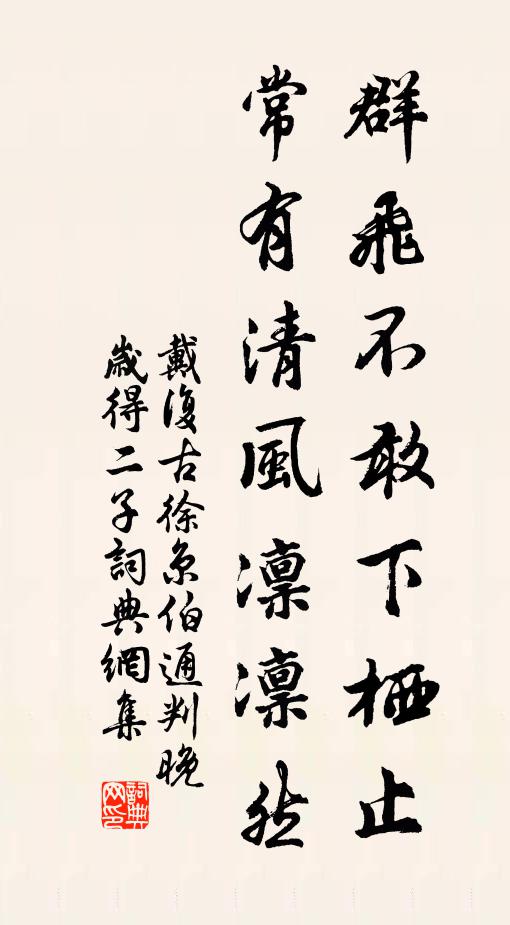 群飛不敢下栖止
常有清風凛凛然
戴復古徐京伯通判晚
歲得二子詞典網集
詞典
网印